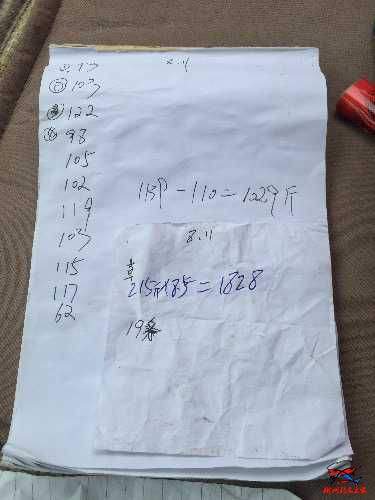 8.11
② 103
③ 122
④ 98
105
102
119
103
115
117
62
1139-110=1029斤
8.11
215斤×85=1828
19条